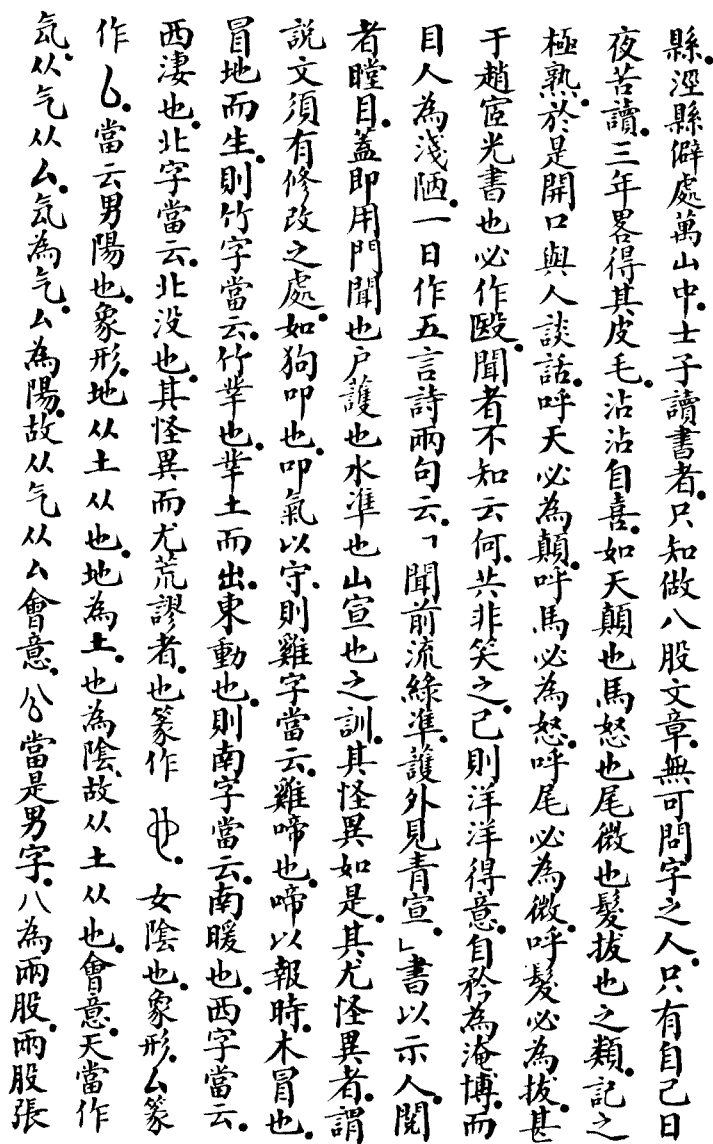 縣。涇縣僻處萬山中。士子讀書者。只知做八股文章。無可問字之人。只有自己日
夜苦讀。三年畧得其皮毛。沾沾自喜。如天顛也馬怒也尾微也髮拔也之類。記之
極熟。於是開口與人談話。呼天必為顛。呼馬必為怒。呼尾必為微。呼髮必為拔。甚
于趙宧光書也必作殹。聞者不知云何。共非笑之。己則洋洋得意。自矜為淹博。而
目人為淺陋。一日作五言詩兩句云。「聞前流綠準。護外見青宣。」書以示人。閱
者瞠目。蓋即用門聞也戶護也水準也山宣也之訓。其怪異如是。其尤怪異者。謂
說文須有修改之處。如狗叩也。叩氣以守。則雞字當云。雞啼也。啼以報時。木冒也。
冒地而生。則竹字當云。竹茻也。茻土而出。東動也。則南字當云。南暖也。西字當云。
西淒也。北字當云。北没也。其怪異而尤荒謬者。也篆作。女陰也。象形。厶篆
作。當云男陽也。象形。地从土从也。地為土。也為陰。故从土从也。會意。天當作
氙。从气从厶。氙為气。厶為陽。故从气从厶會意。㕣當是男字。八為兩股。兩股張